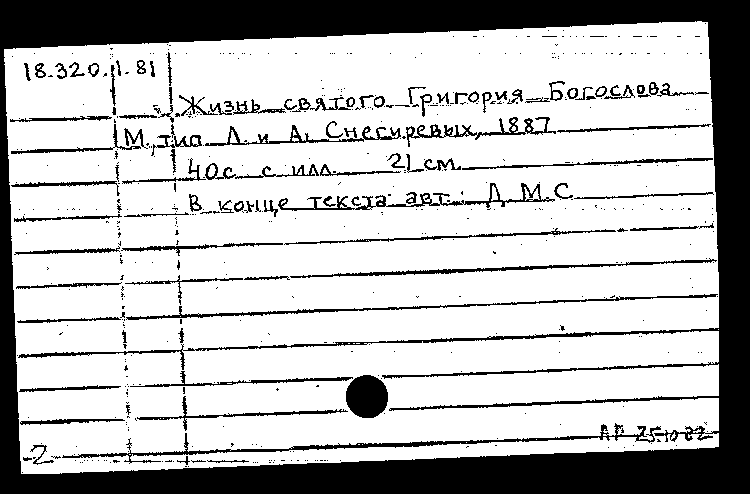 18.320.1.81
Жизнь святого Григория Богослова
М., тип Л. и А. Снегиревых, 1887
40с с илл. 21 см.
В конце текста авт.: Д.М.С
2
АР 25.10.82